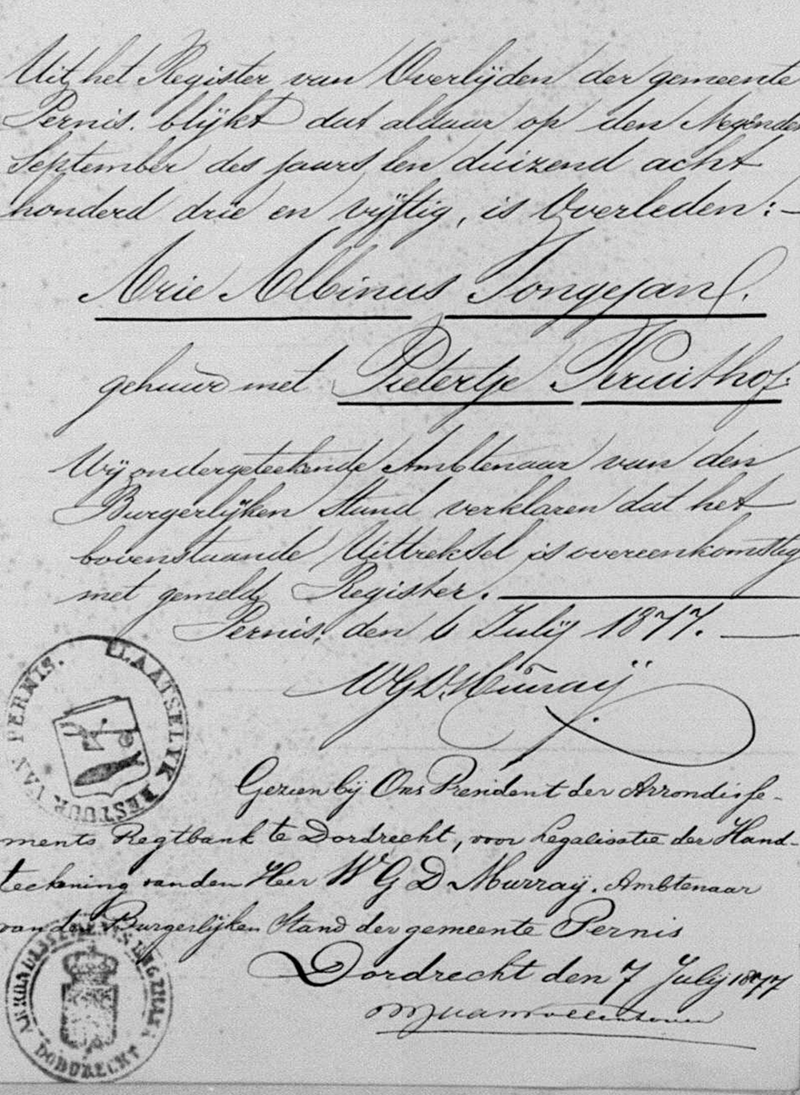 Uit het Register van Overlijden der gemeente
Pernis. blijkt dat aldaar op den Negenden
September des jaars een duizend acht
honderd drie en vijftig, is Overleden: -
Arie Albinus Jongejan.
gehuwd met Pietertje Kruithof.
Wij ondergeteekende Ambtenaar van den
Burgerlijken Stand verklaren dat het
bovenstaande Uittreksel is overeenkomstig
met gemeld Register.
Pernis, den 6 Julij 1877.
WGD. Murraij
PLAATSELYK BESTUUR VAN PERNIS.
Gezien bij Ons President der Arrondisse-
ments Regtbank te Dordrecht, voor Legalisatie der Hand-
teekening van den Heer W G D Murraij. Ambtenaar
van den Burgerlijken Stand der gemeente Pernis
Dordrecht den 7 Julij 1877
DORDRECHT